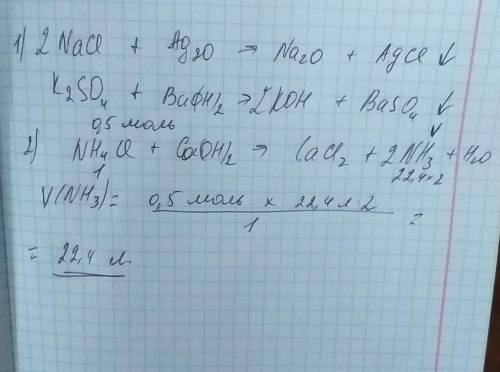 1) 2 NaCl + Ag2O → Na2O + AgCl ↓
K2SO4 + Ba(OH)2 → 2KOH + BaSO4 ↓
0,5 моль V
2) NH4Cl + Ca(OH)2 → CaCl2 + 2NH3 + H2O
1 22,4×2
V(NH3) = 0,5 моль × 22,4 л·2 =
1
= 22,4 л